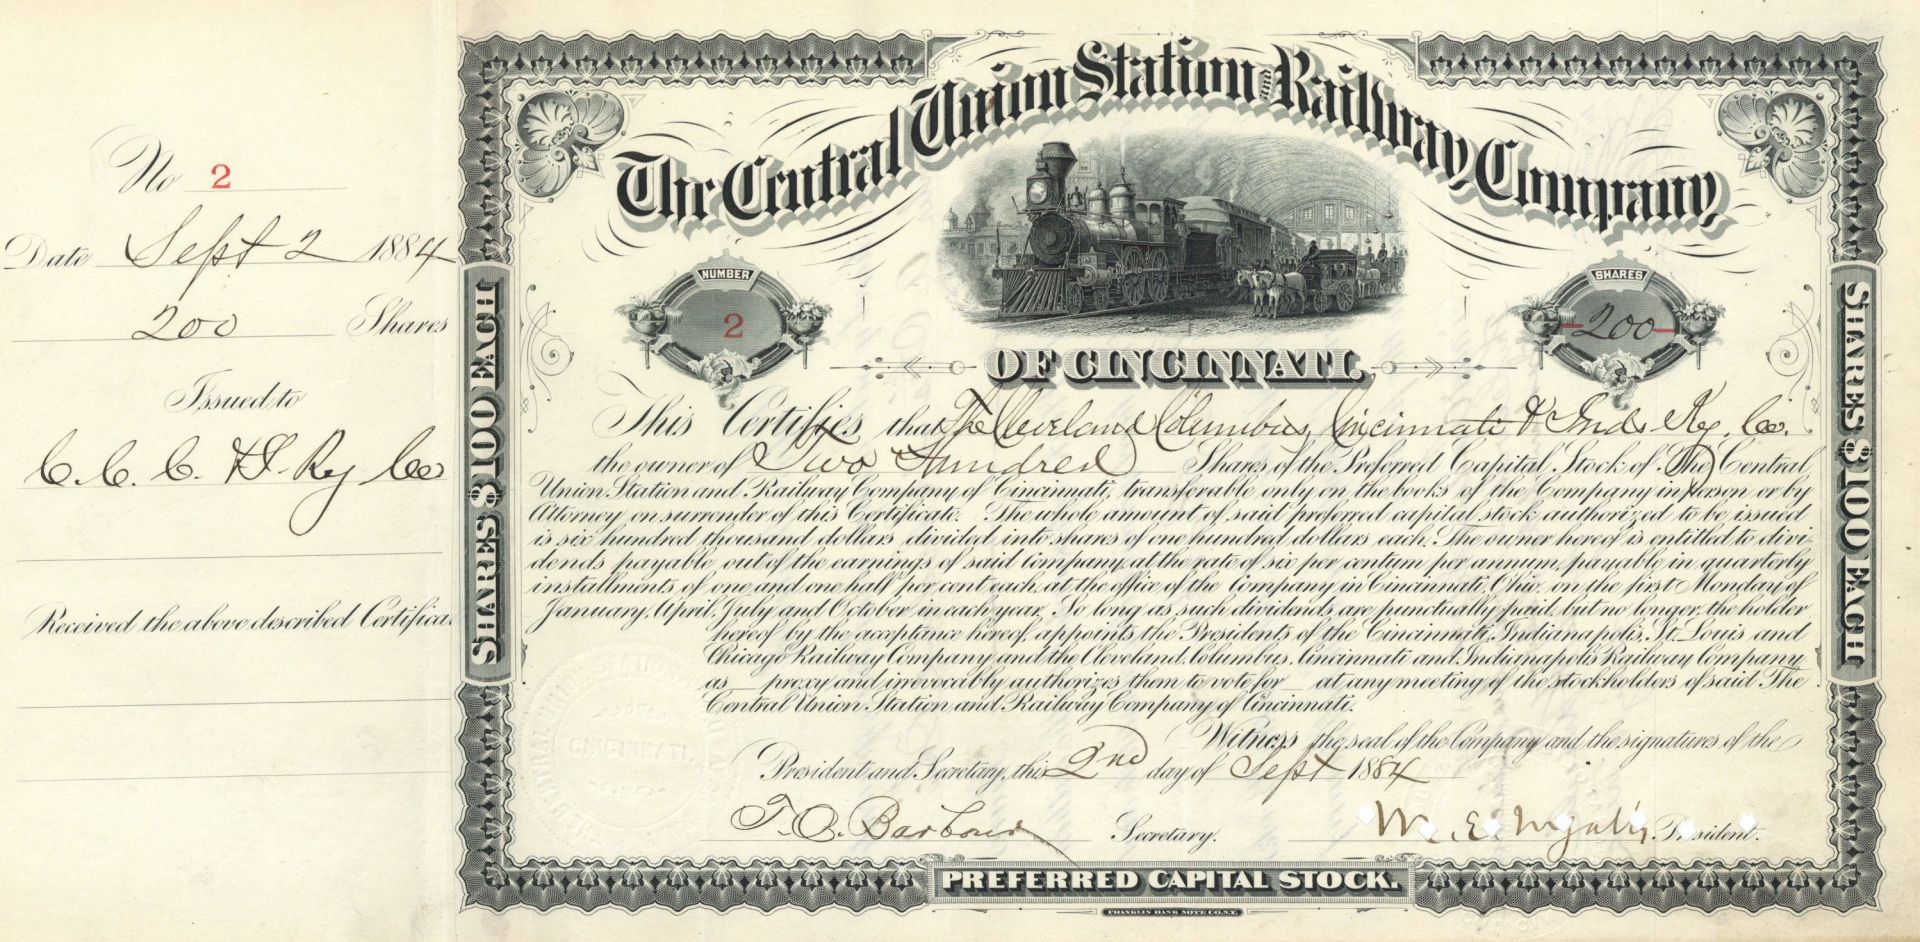 No 2
Date Sept 2 1884
200 Shares
Issued to
C. C. C. & I. Ry Co
Received the above described Certificat
The Central Union Station and Railway Company
NUMBER
2
SHARES
-200-
OF CINCINNATI.
SHARES $100 EACH
SHARES $100 EACH
This Certifies that The Cleveland Columbus, Cincinnati & Inds Ry. Co.
the owner of Two Hundred Shares of the Preferred Capital Stock of The Central
Union Station and Railway Company of Cincinnati, transferable only on the books of the Company in person or by
Attorney on surrender of this Certificate. The whole amount of said preferred capital stock authorized to be issued
is six hundred thousand dollars divided into shares of one hundred dollars each. The owner hereof is entitled to divi-
dends payable out of the earnings of said company, at the rate of six per centum per annum, payable in quarterly
installments of one and one half per cent each, at the office of the Company in Cincinnati, Ohio, on the first Monday of
January, April, July and October in each year. So long as such dividends are punctually paid, but no longer, the holder
hereof by the acceptance hereof, appoints the Presidents of the Cincinnati, Indianapolis, St. Louis and
Chicago Railway Company and the Cleveland, Columbus, Cincinnati and Indianapolis Railway Company
as proxy and irrevocably authorizes them to vote for at any meeting of the stockholders of said The
Central Union Station and Railway Company of Cincinnati.
Witness the seal of the Company and the signatures of the
President and Secretary, this 2nd day of Sept 1884
Barbour Secretary. President.
CINCINNATI.
PREFERRED CAPITAL STOCK.
FRANKLIN BANK NOTE CO. N.Y.